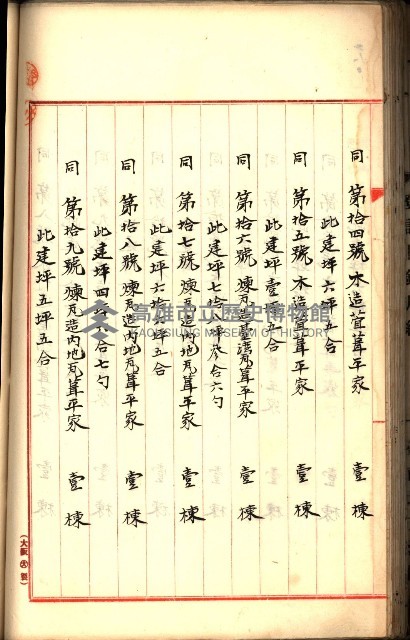 同 第拾四號 木造萱葺平家 壹棟
此建坪六坪五合
同 第拾五號 木造萱葺平家 壹棟
此建坪壹
同 第拾六號 煉瓦造臺灣瓦葺平家 壹棟
此建坪七拾八坪參合六勺
同 第拾七號 煉瓦造内地瓦葺平家 壹棟
此建坪六拾坪五合
同 第拾八號 煉瓦造内地瓦葺平家 壹棟
此建坪四 六合七勺
同 第拾九號 煉瓦造内地瓦葺平家 壹棟
此建坪五坪五合
高雄市立歷史博物館
KAOHSIUNG MUSEUM OF HISTORY